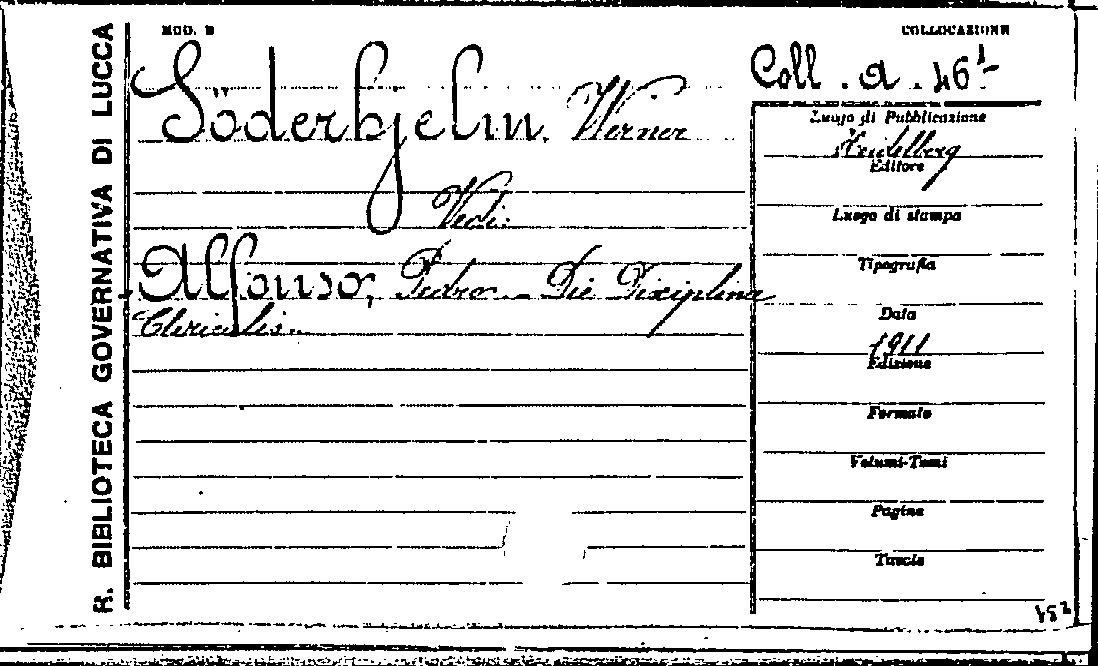 R. BIBLIOTECA GOVERNATIVA DI LUCCA
MOD. B
COLLOCAZIONE
Coll. a. 46¹
Söderhjelm, Werner
Vedi:
Alfonso, Pedro - Die Disciplina
Clericalis.
Luogo di Pubblicazione
Heidelberg
Editore
Luogo di stampa
Tipografia
Data
1911
Edizione
Formato
Volumi-Tomi
Pagine
Tavole